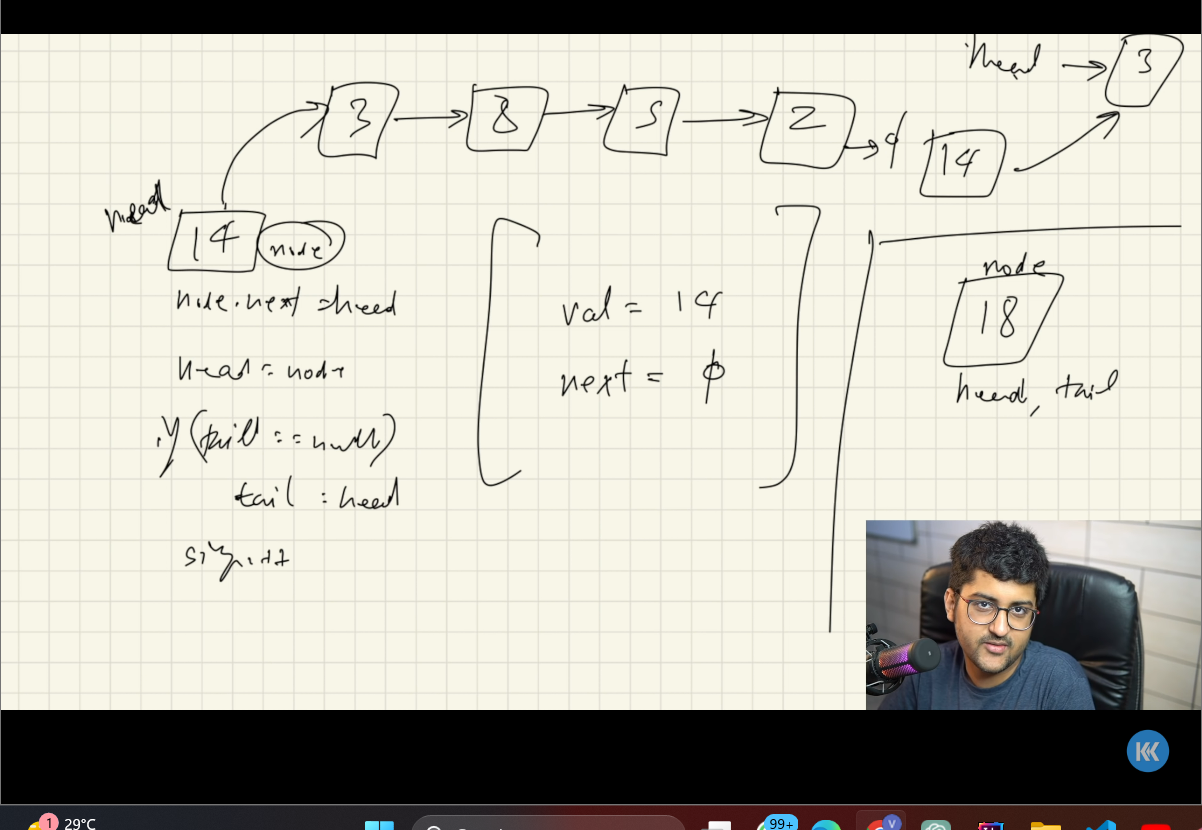 head → 3
3 → 8 → 5 → 2 → ϕ
14
head
14 node
node.next = head
head = node
if (tail == null)
tail = head
size++
val = 14
next = ϕ
node
18
head, tail
1
29°C
99+
V